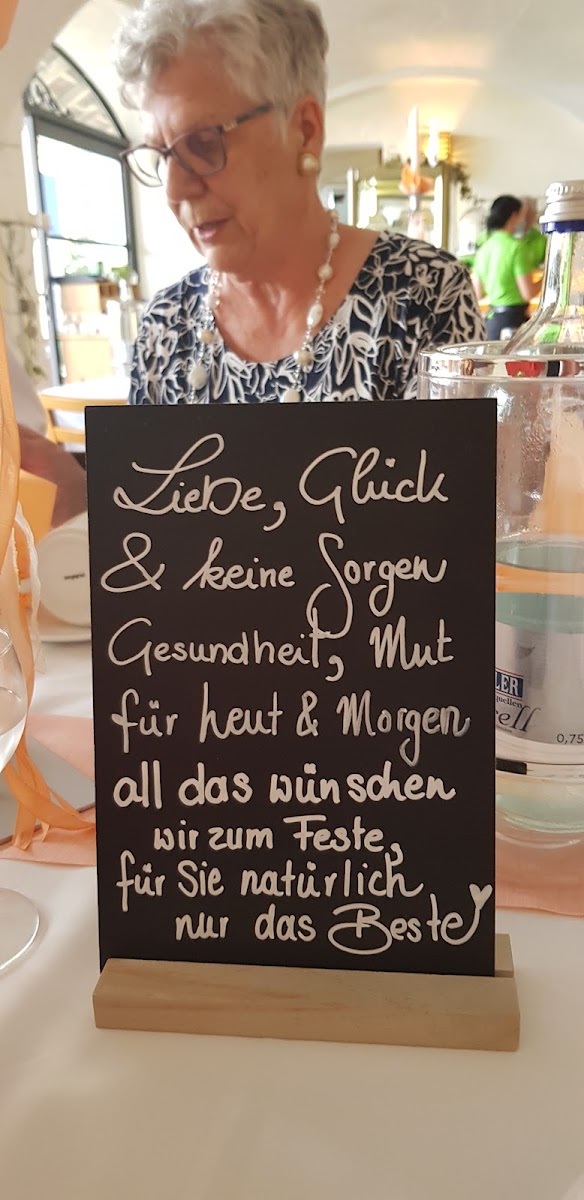 Liebe, Glück
& keine Sorgen
Gesundheit, Mut
für heut & Morgen
all das wünschen
wir zum Feste,
für Sie natürlich
nur das Beste
LER
quellen
ell
0,75